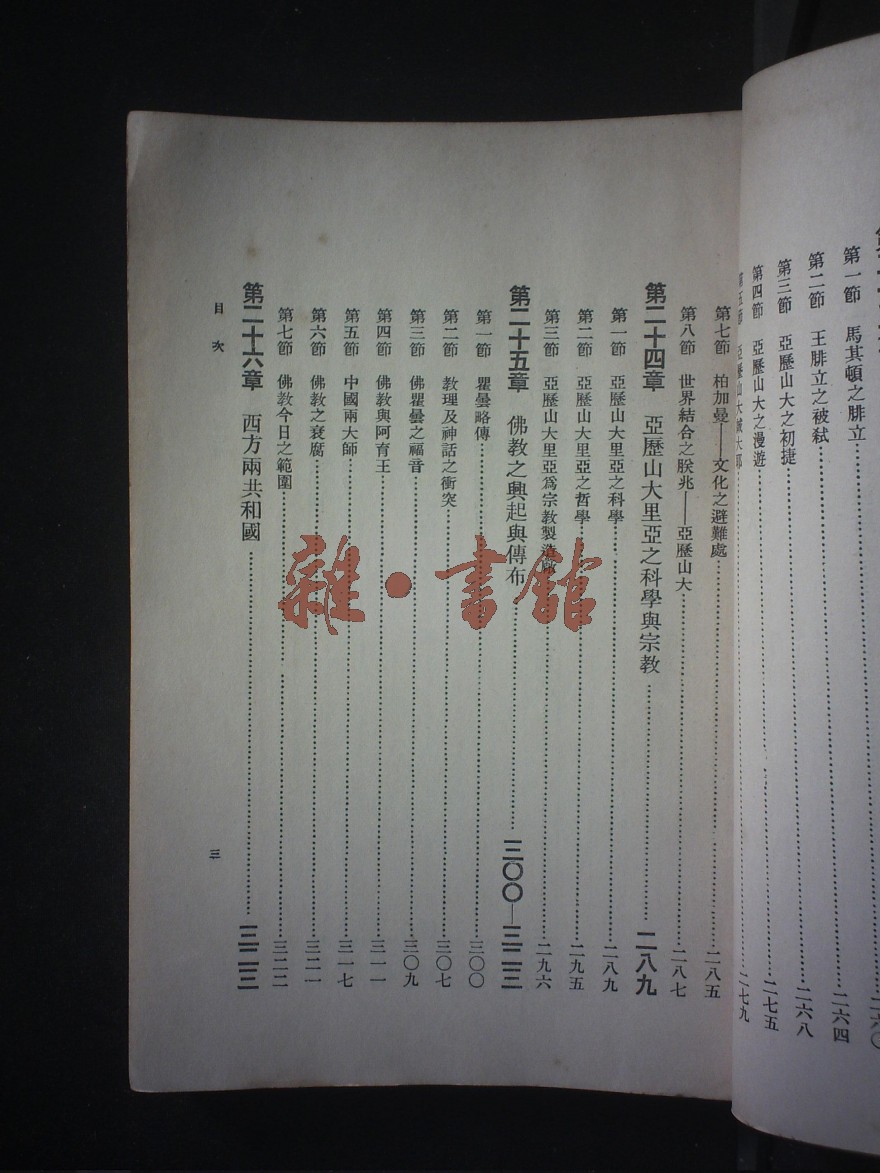 第一節　馬其頓之腓立……二六四
第二節　王腓立之被弒……二六八
第三節　亞歷山大之初捷……二七五
第四節　亞歷山大之漫遊……二七九
第七節　柏加曼——文化之避難處……二八五
第八節　世界結合之朕兆——亞歷山大……二八七
第二十四章　亞歷山大里亞之科學與宗教……二八九
第一節　亞歷山大里亞之科學……二八九
第二節　亞歷山大里亞之哲學……二九五
第三節　亞歷山大里亞爲宗教製造廠……二九六
第二十五章　佛教之興起與傳布……三〇〇—三二三
第一節　瞿曇略傳……三〇〇
第二節　教理及神話之衝突……三〇七
第三節　佛瞿曇之福音……三〇九
第四節　佛教與阿育王……三一一
第五節　中國兩大師……三一七
第六節　佛教之衰腐……三二一
第七節　佛教今日之範圍……三二二
第二十六章　西方兩共和國……三二三
目次
三
雜·書館